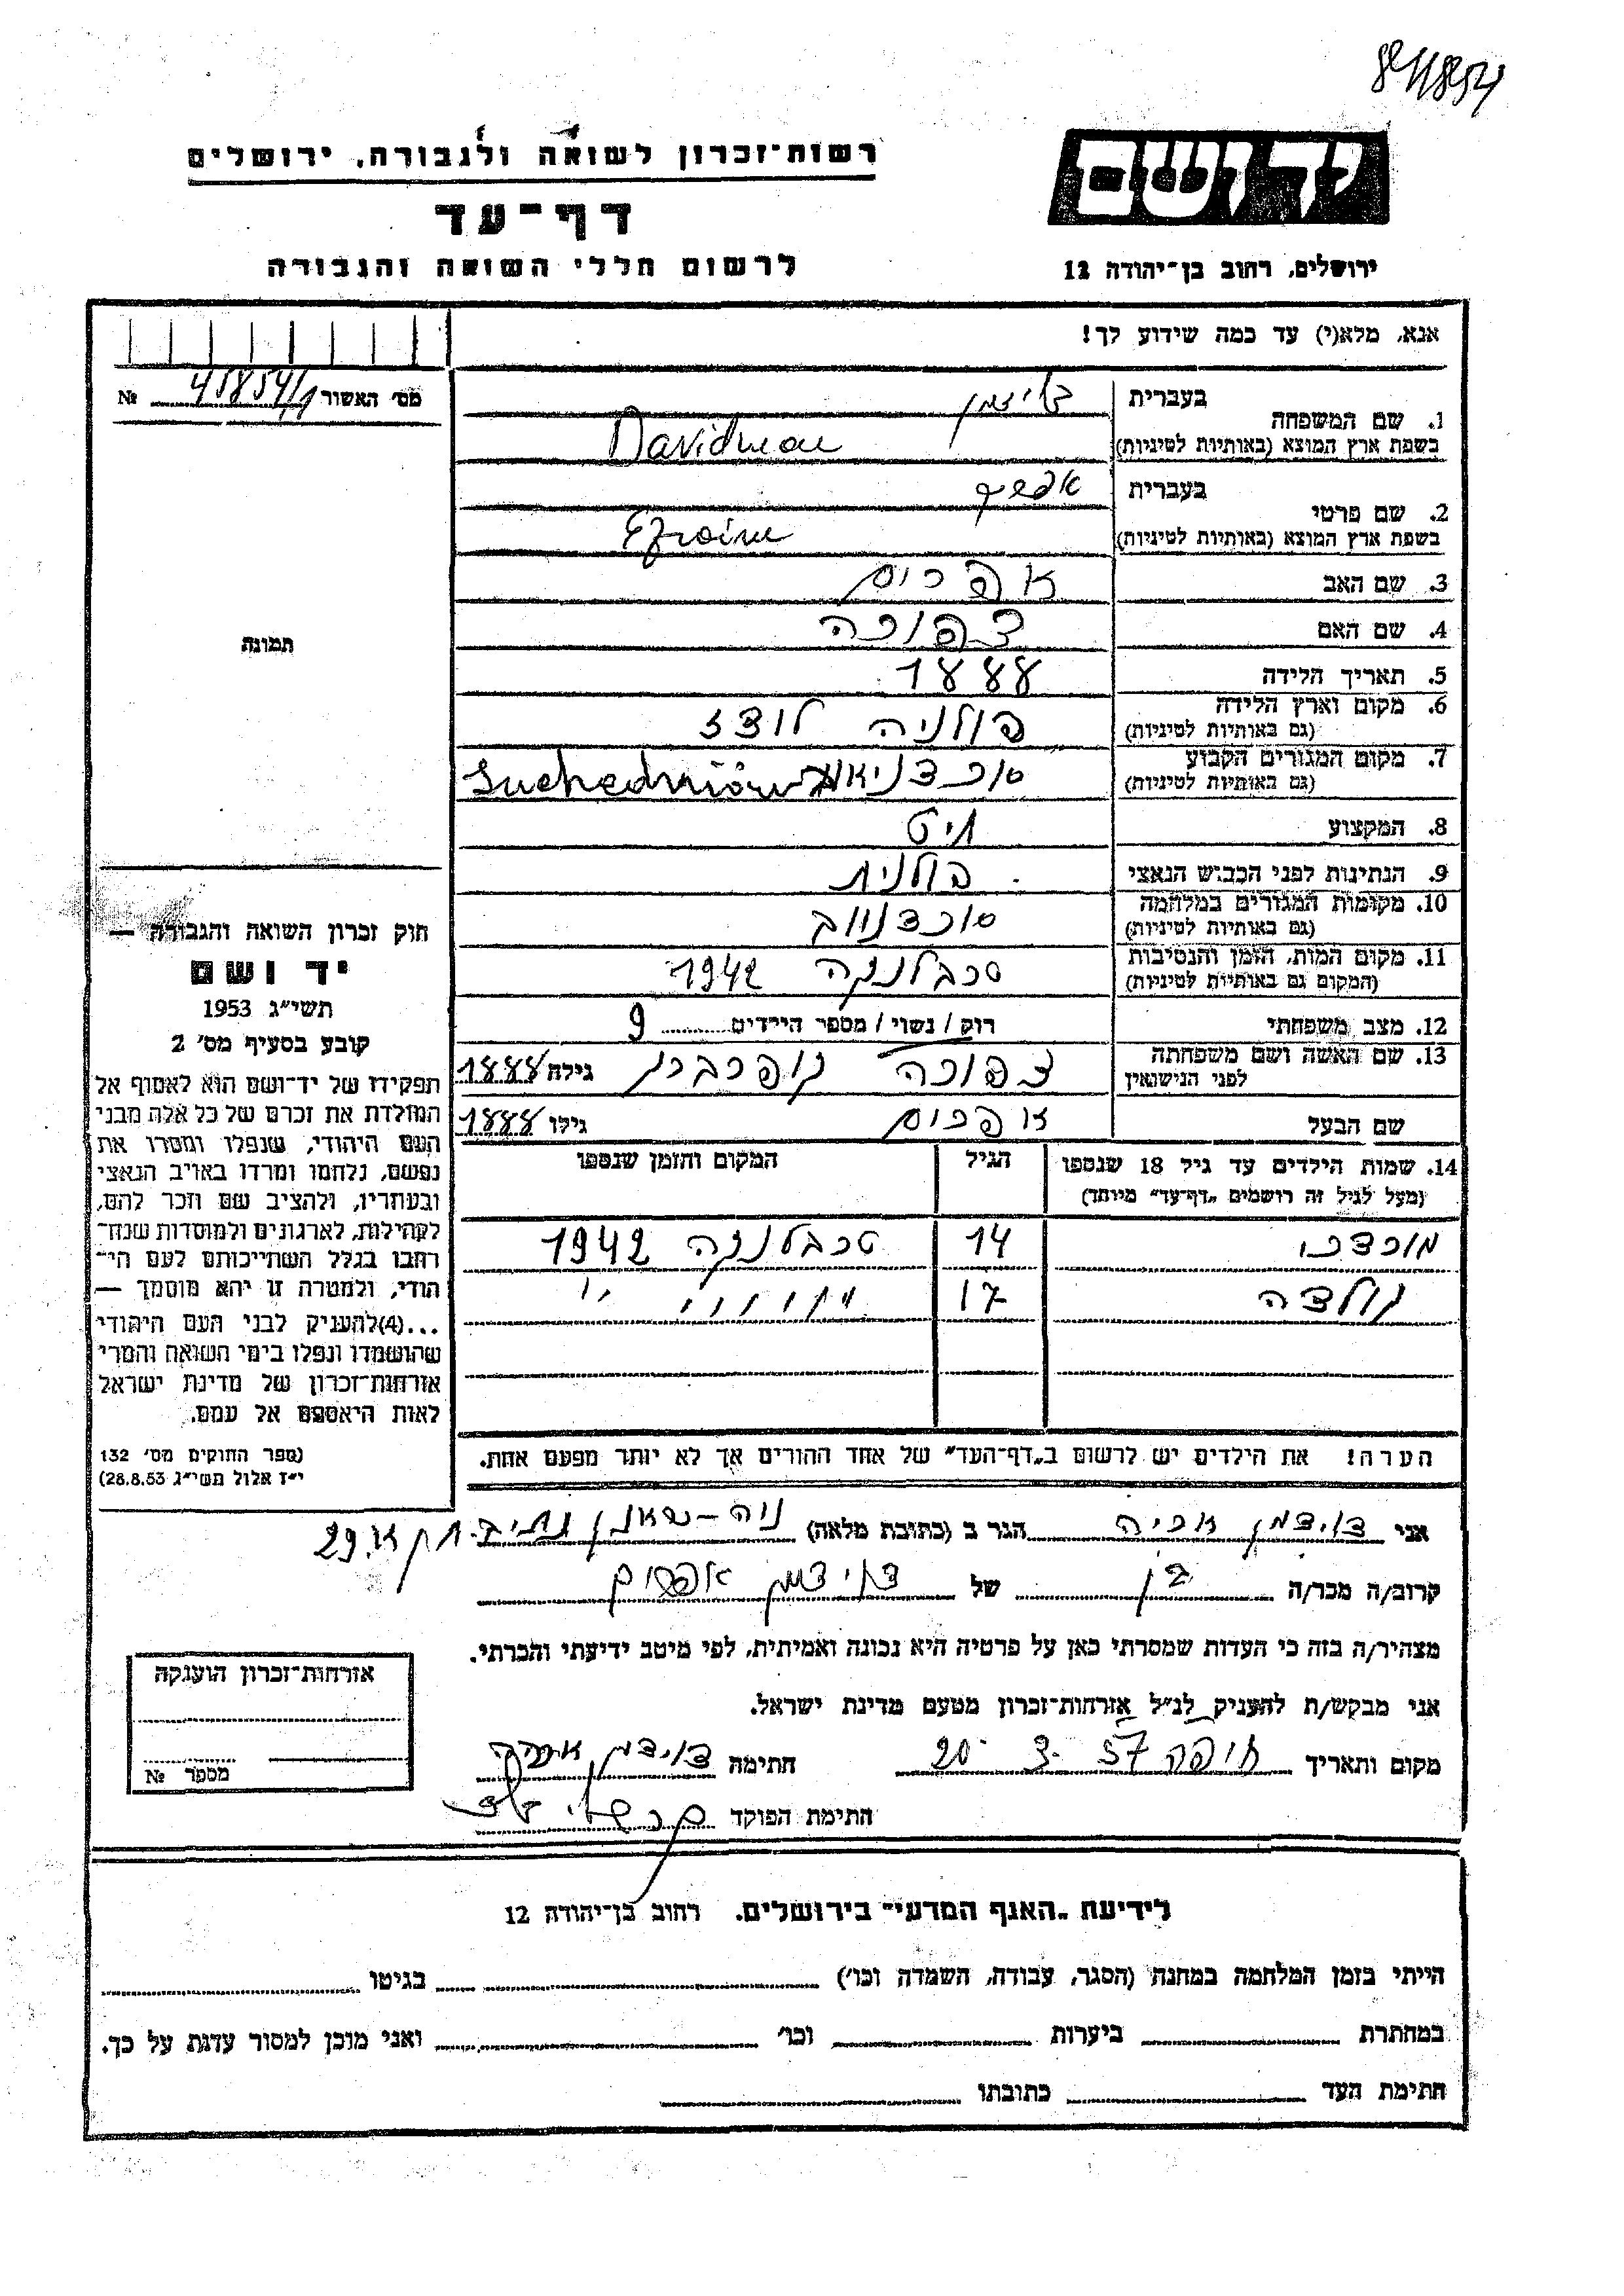 יד ושם
רשות־זכרון לשואה ולגבורה, ירושלים
דף־עד
לרשום חללי השואה והגבורה
ירושלים, רחוב בן־יהודה 12
אנא, מלא(י) עד כמה שידוע לך!
מס' האשור 45854/1 №
1. שם המשפחה
בעברית
בשפת ארץ המוצא (באותיות לטיניות) Davidman
2. שם פרטי
בעברית אפרים
בשפת ארץ המוצא (באותיות לטיניות) Efroim
3. שם האב אפרים
4. שם האם צפורה
5. תאריך הלידה 1888
6. מקום וארץ הלידה פולניה לודז
(גם באותיות לטיניות)
7. מקום המגורים הקבוע Suchedniów
(גם באותיות לטיניות)
8. המקצוע חיט
9. הנתינות לפני הכבוש הנאצי פולנית
10. מקומות המגורים במלחמה סוכדניוב
(גם באותיות לטיניות)
11. מקום המות, הזמן והנסיבות טרבלנקה 1942
(המקום גם באותיות לטיניות)
12. מצב משפחתי רוק / נשוי / מספר הילדים 9
13. שם האשה ושם משפחתה צפורה גילה 1888
לפני הנישואין
שם הבעל אפרים גילו 1888
14. שמות הילדים עד גיל 18 שנספו הגיל המקום והזמן שנספו
(מעל לגיל זה רושמים "דף־עד" מיוחד)
מורדכי 14 טרבלנקה 1942
גולדה 17 " " " " "
הערה! את הילדים יש לרשום ב"דף־העד" של אחד ההורים אך לא יותר מפעם אחת.
תמונה
חוק זכרון השואה והגבורה —
יד ושם
תשי"ג 1953
קובע בסעיף מס' 2
תפקידו של יד־ושם הוא לאסוף אל
המולדת את זכרם של כל אלה מבני
העם היהודי, שנפלו ומסרו את
נפשם, נלחמו ומרדו באויב הנאצי
ובעוזריו, ולהציב שם וזכר להם,
לקהילות, לארגונים ולמוסדות שנח־
רבו בגלל השתייכותם לעם הי־
הודי, ולמטרה זו יהא מוסמך —
...(4)להעניק לבני העם היהודי
שהושמדו ונפלו בימי השואה והמרי
אזרחות־זכרון של מדינת ישראל
לאות היאספם אל עמם.
(ספר החוקים מס' 132
י"ז אלול תשי"ג 28.8.53)
אני דוידמן אריה הגר ב (כתובת מלאה) נוה־שאנן 29
קרוב/ה מכר/ה בן של דוידמן אפרים
מצהיר/ה בזה כי העדות שמסרתי כאן על פרטיה היא נכונה ואמיתית, לפי מיטב ידיעתי והכרתי.
אני מבקש/ת להעניק לנ"ל אזרחות־זכרון מטעם מדינת ישראל.
מקום ותאריך חיפה 20 3 57 חתימה דוידמן אריה
חתימת הפוקד
אזרחות־זכרון הוענקה
מספר №
לידיעת "האגף המדעי" בירושלים, רחוב בן־יהודה 12
הייתי בזמן המלחמה במחנה (הסגר, עבודה, השמדה וכו') בגיטו
במחתרת ביערות וכו' ואני מוכן למסור עדות על כך.
חתימת העד כתובתו